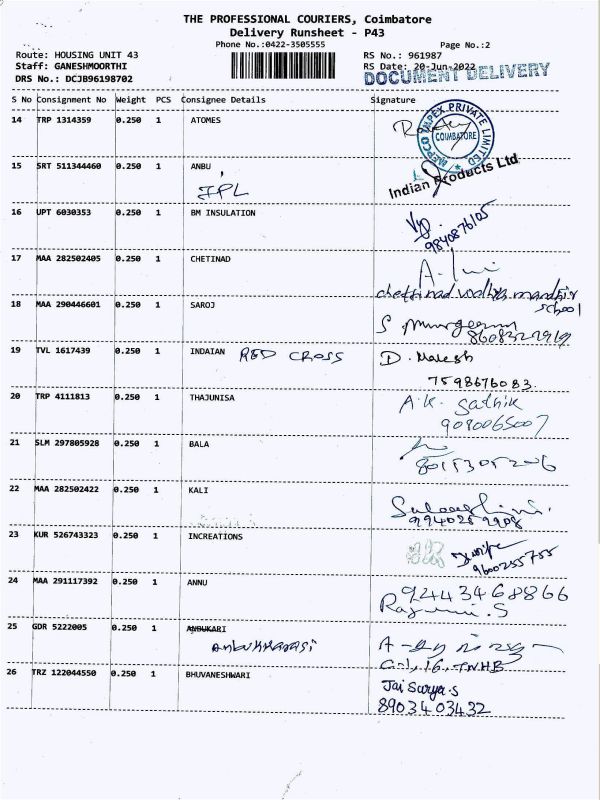 THE PROFESSIONAL COURIERS, Coimbatore
Delivery Runsheet - P43
Phone No.:0422-3505555
Page No.:2
Route: HOUSING UNIT 43
RS No.: 961987
Staff: GANESHMOORTHI
RS Date: 20-Jun-2022
DRS No.: DCJB96198702
DOCUMENT DELIVERY
S No Consignment No Weight PCS Consignee Details Signature
14 TRP 1314359 0.250 1 ATOMES
MEPCO IMPEX PRIVATE LIMITED
COIMBATORE
15 SRT 511344460 0.250 1 ANBU
IPL
Indian Products Ltd
16 UPT 6030353 0.250 1 BM INSULATION
9840876105
17 MAA 282502405 0.250 1 CHETINAD
chettinad vidhya mandhir
school
18 MAA 290446601 0.250 1 SAROJ
19 TVL 1617439 0.250 1 INDAIAN RED CROSS D. Mahesh
7598676083.
20 TRP 4111813 0.250 1 THAJUNISA A.K. Sathik
9090065007
21 SLM 297805928 0.250 1 BALA
8015305206
22 MAA 282502422 0.250 1 KALI
23 KUR 526743323 0.250 1 INCREATIONS
9600255755
24 MAA 291117392 0.250 1 ANNU 9244346 8866
25 GDR 5222005 0.250 1 ANBUKARI
Anbukkarasi
C-1, 16, TNHB
26 TRZ 122044550 0.250 1 BHUVANESHWARI Jai Surya.S
8903403432